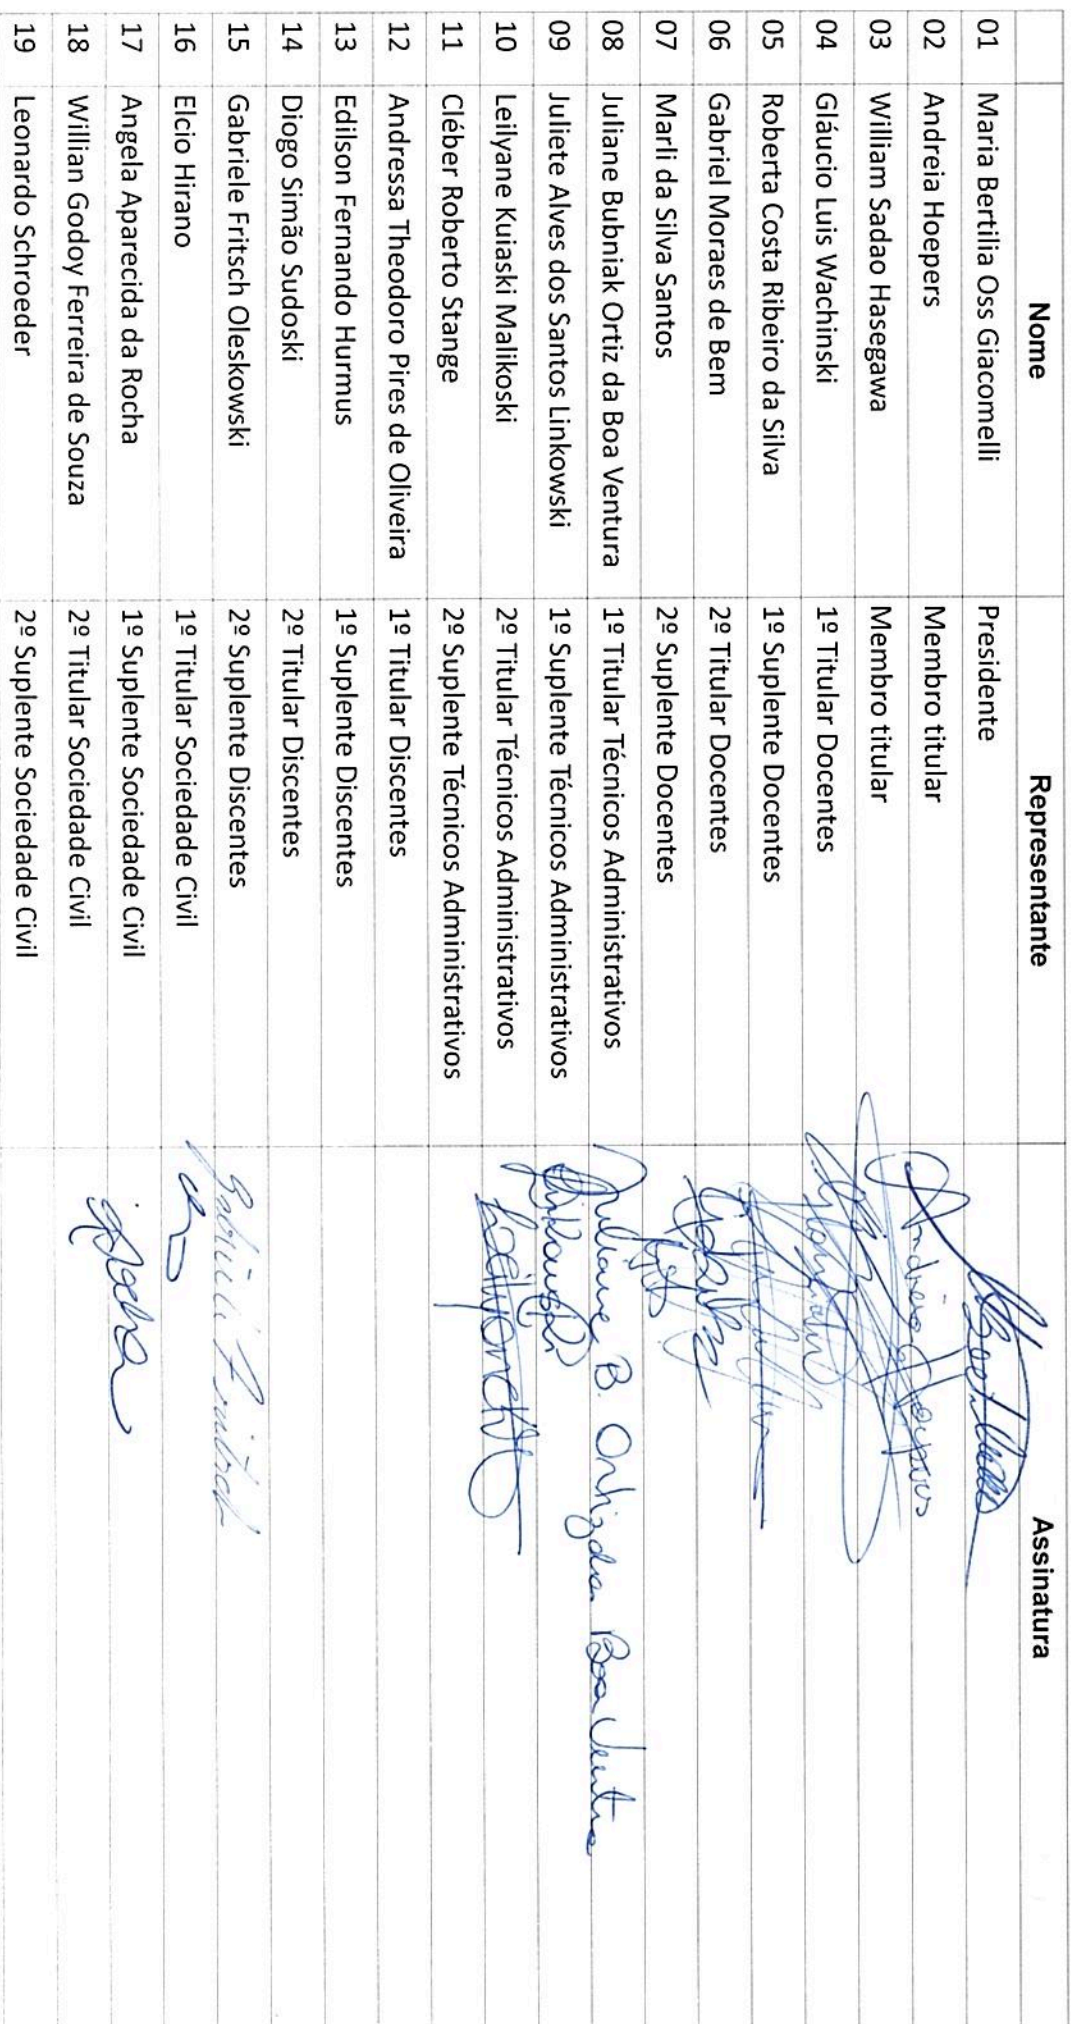 Nome Representante Assinatura
01 Maria Bertilia Oss Giacomelli Presidente
02 Andreia Hoepers Membro titular Andreia Hoepers
03 William Sadao Hasegawa Membro titular
04 Gláucio Luis Wachinski 1º Titular Docentes
05 Roberta Costa Ribeiro da Silva 1º Suplente Docentes
06 Gabriel Moraes de Bem 2º Titular Docentes
07 Marli da Silva Santos 2º Suplente Docentes
08 Juliane Bubniak Ortiz da Boa Ventura 1º Titular Técnicos Administrativos Juliane B. Ortiz da Boa Ventura
09 Juliete Alves dos Santos Linkowski 1º Suplente Técnicos Administrativos
10 Leilyane Kuiaski Malikoski 2º Titular Técnicos Administrativos
11 Cléber Roberto Stange 2º Suplente Técnicos Administrativos
12 Andressa Theodoro Pires de Oliveira 1º Titular Discentes
13 Edilson Fernando Hurmus 1º Suplente Discentes
14 Diogo Simão Sudoski 2º Titular Discentes
15 Gabriele Fritsch Oleskowski 2º Suplente Discentes Gabriele Fritsch
16 Elcio Hirano 1º Titular Sociedade Civil
17 Angela Aparecida da Rocha 1º Suplente Sociedade Civil
18 Willian Godoy Ferreira de Souza 2º Titular Sociedade Civil
19 Leonardo Schroeder 2º Suplente Sociedade Civil